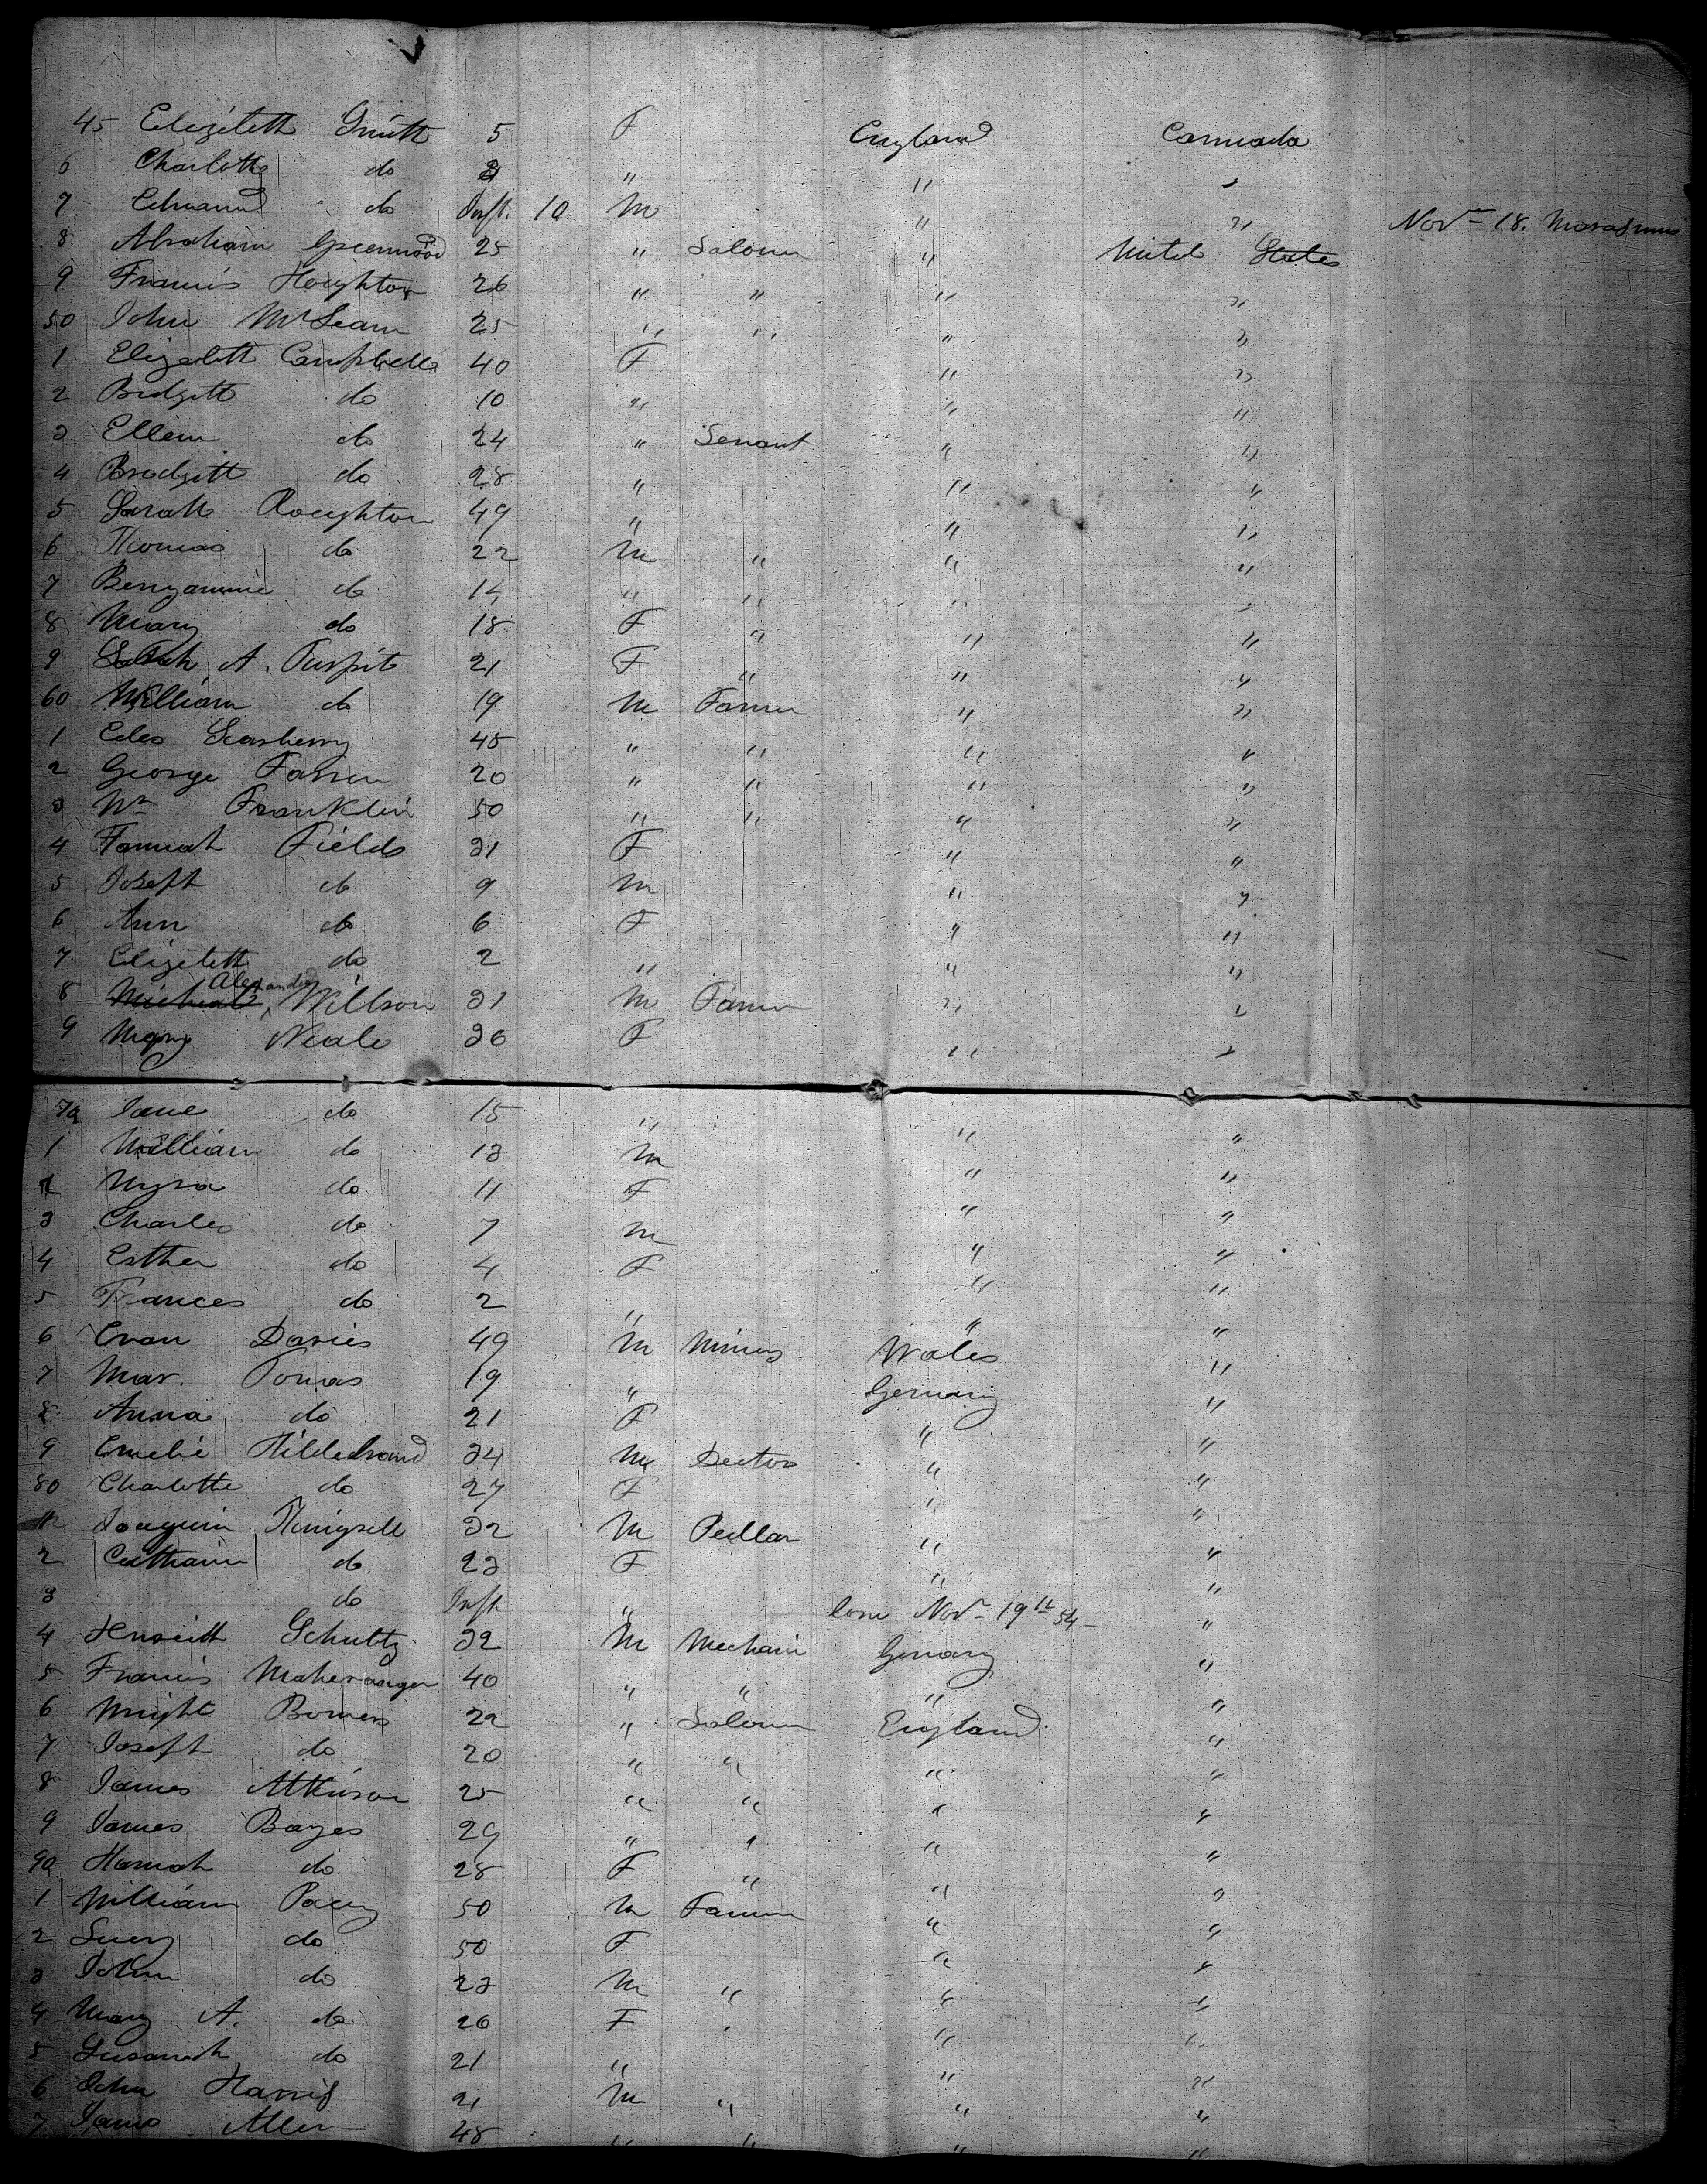 45 Elizabeth Smith 5 F England Cannada
6 Charlotte do 3 " " "
7 Edmund do Inft. 10 M " " Novr 18. Marasmus
8 Abraham Greenwood 25 " Laborer " United States
9 Francis Houghton 26 " " " "
50 John McLean 25 " " " "
1 Elizabeth Campbell 40 F " "
2 Bridgett do 10 " " "
3 Ellen do 24 " Servant " "
4 Bridgett do 28 " " "
5 Sarah Roughton 49 " " "
6 Thomas do 22 M " " "
7 Benjamine do 14 " " " "
8 Mary do 18 F " " "
9 Sarah A. Turpit 21 F " " "
60 William do 19 M Farmer " "
1 45 " " " "
2 George Farren 20 " " " "
3 Wm Franklin 50 " " " "
4 Hannah Fields 31 F " "
5 Joseph do 9 M " "
6 Ann do 6 F " "
7 Elizabeth do 2 " " "
Alexander
8 Michael Willson 31 M Farmer " "
9 Mary Neale 36 F " "
70 Jane do 15 " " "
1 William do 13 M " "
2 Myra do 11 F " "
3 Charles do 7 M " "
4 Esther do 4 F " "
5 Frances do 2 " " "
6 Evan Davies 49 M Miner Wales "
7 Max. Tomas 19 " Germany "
8 Anna do 21 F " "
9 Emelie Hildebrand 34 M Doctor " "
80 Charlotte do 27 F " "
Joaquim 32 M Pedlar " "
2 Catharin do 23 F " "
3 do Inft " born Novr 19th 54 "
4 Schultz 32 M Mechanic Germany "
5 Francis 40 " " " "
6 Wright Bowers 22 " Laborer England "
7 Joseph do 20 " " " "
8 James Atkinson 25 " " " "
9 James Bayes 29 " " " "
90 Hannah do 28 F " " "
1 William Pacey 50 M Farmer " "
2 Lucy do 50 F " "
3 John do 23 M " " "
4 Mary A. do 26 F " " "
5 Susannah do 21 " " "
6 John Harris 21 M " " "
7 James Allen 48 " " " "